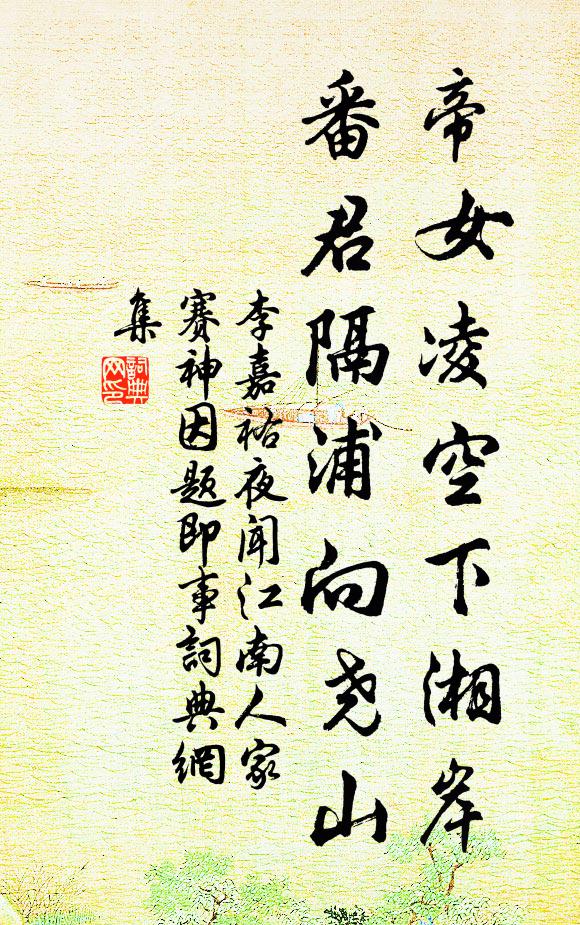 帝女凌空下湘岸
番君隔浦向尧山
李嘉祐夜闻江南人家
赛神因题即事詞典網
集
詞典
网印